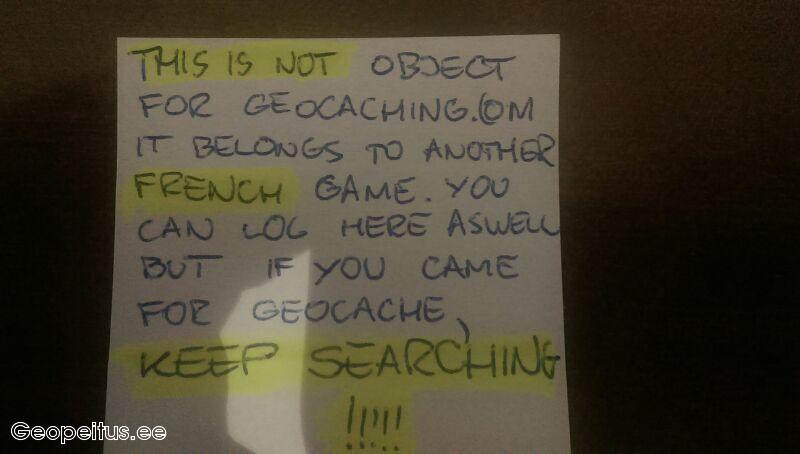 THIS IS NOT OBJECT
FOR GEOCACHING.COM
IT BELONGS TO ANOTHER
FRENCH GAME. YOU
CAN LOG HERE ASWELL
BUT IF YOU CAME
FOR GEOCACHE,
KEEP SEARCHING
!!!!!
Geopeitus.ee